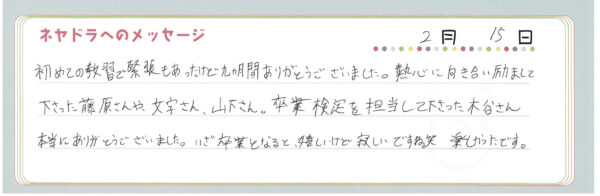 ネヤドラへのメッセージ
2月 15日
初めての教習で緊張もあったけど九ヶ月間ありがとうございました。熱心に向き合い励まして
下さった藤原さんや、文字さん、山下さん。卒業検定を担当して下さった木谷さん
本当にありがとうございました。いざ卒業となると、嬉しいけど寂しいですね笑 楽しかったです。